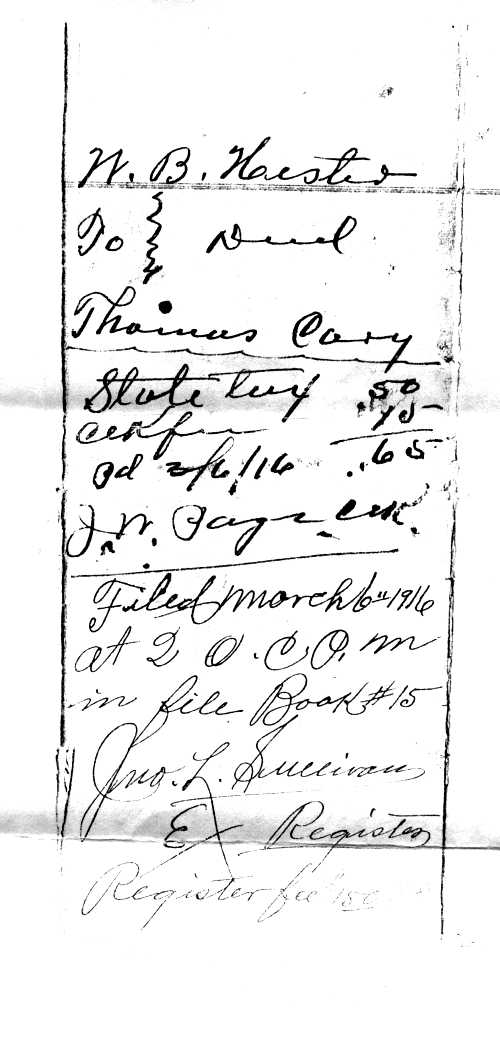 W. B. Hester
To } Deed
Thomas Cary
State tax .50
Clk fee .15
Pd 3/6/16 .65
J. W. Page Clk.
Filed March 6th 1916
at 2 O.C.P.M
in file Book #15
Jno. L. Sullivan
Ex Register
Register fee 150